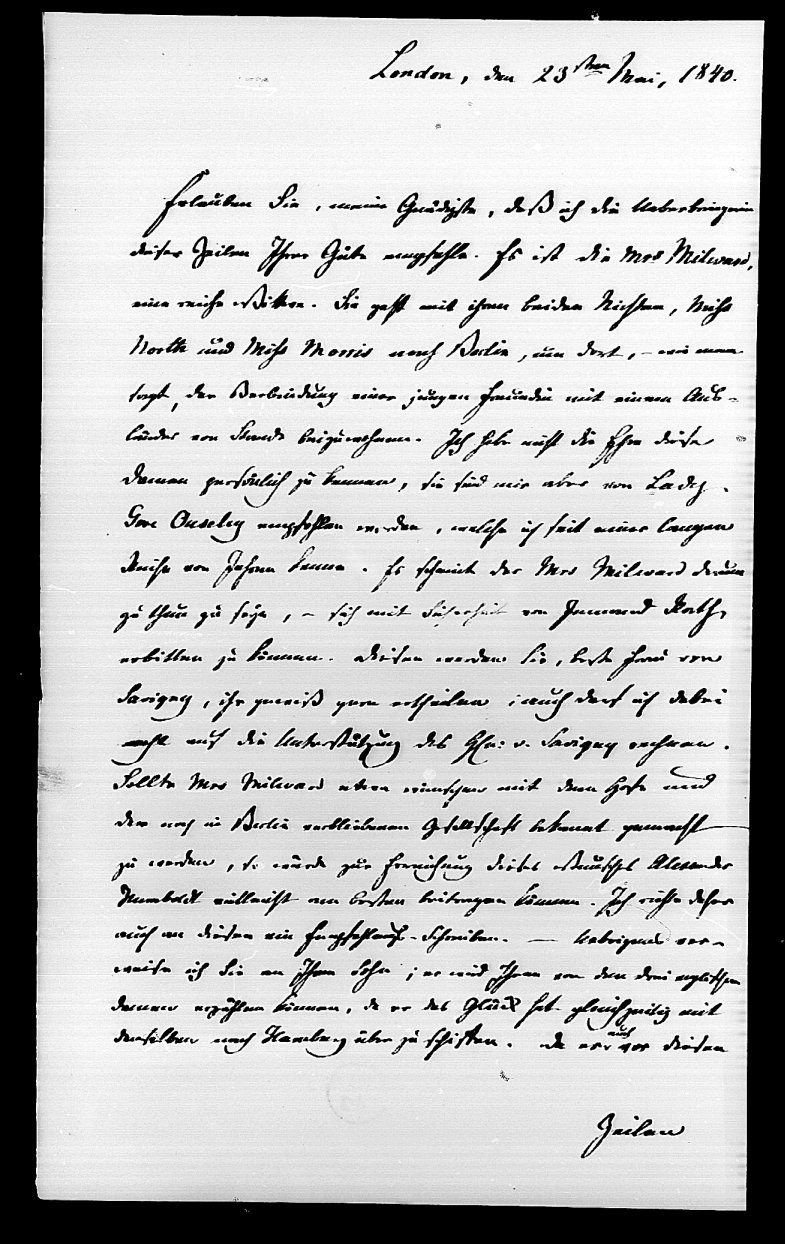 London, den 23sten Mai, 1840.
Erlauben Sie, meine Gnädigste, daß ich die Ueberbringerin
dieser Zeilen Ihrer Güte empfehle. Es ist die Mrs Milward,
eine reiche Wittwe. Sie geht mit ihren beiden Nichten, Miss
North und Miss Morris nach Berlin, um dort, – wie man
sagt, der Verbindung einer jungen Freundin mit einem Aus-
länder von Stande beizuwohnen. Ich habe nicht die Ehre diese
Damen persönlich zu kennen, sie sind mir aber von Lady
Gore Ouseley empfohlen worden, welche ich seit einer langen
Reihe von Jahren kenne. Es scheint der Mrs Milward darum
zu thun zu seyn, – sich mit Sicherheit von Jemand Rath
erbitten zu können. Diesen werden Sie, beste Frau von
Savigny, ihr gewiß gern ertheilen; auch darf ich dabei
wohl auf die Unterstützung des Hrn: v. Savigny rechnen.
Sollte Mrs Milward etwa wünschen mit dem Hofe und
der noch in Berlin verbliebenen Gesellschaft bekannt gemacht
zu werden, so würde zur Erreichung dieses Wunsches Alexander
Humboldt vielleicht am besten beitragen können. Ich richte daher
auch an diesen ein Empfehlungs-Schreiben. — Uebrigens ver-
weise ich Sie an Ihren Sohn; er wird Ihnen von den drei englischen
Damen erzählen können, da er das Glück hat gleichzeitig mit
denselben nach Hamburg über zu schiffen. Da er auch vor diesen
Zeilen